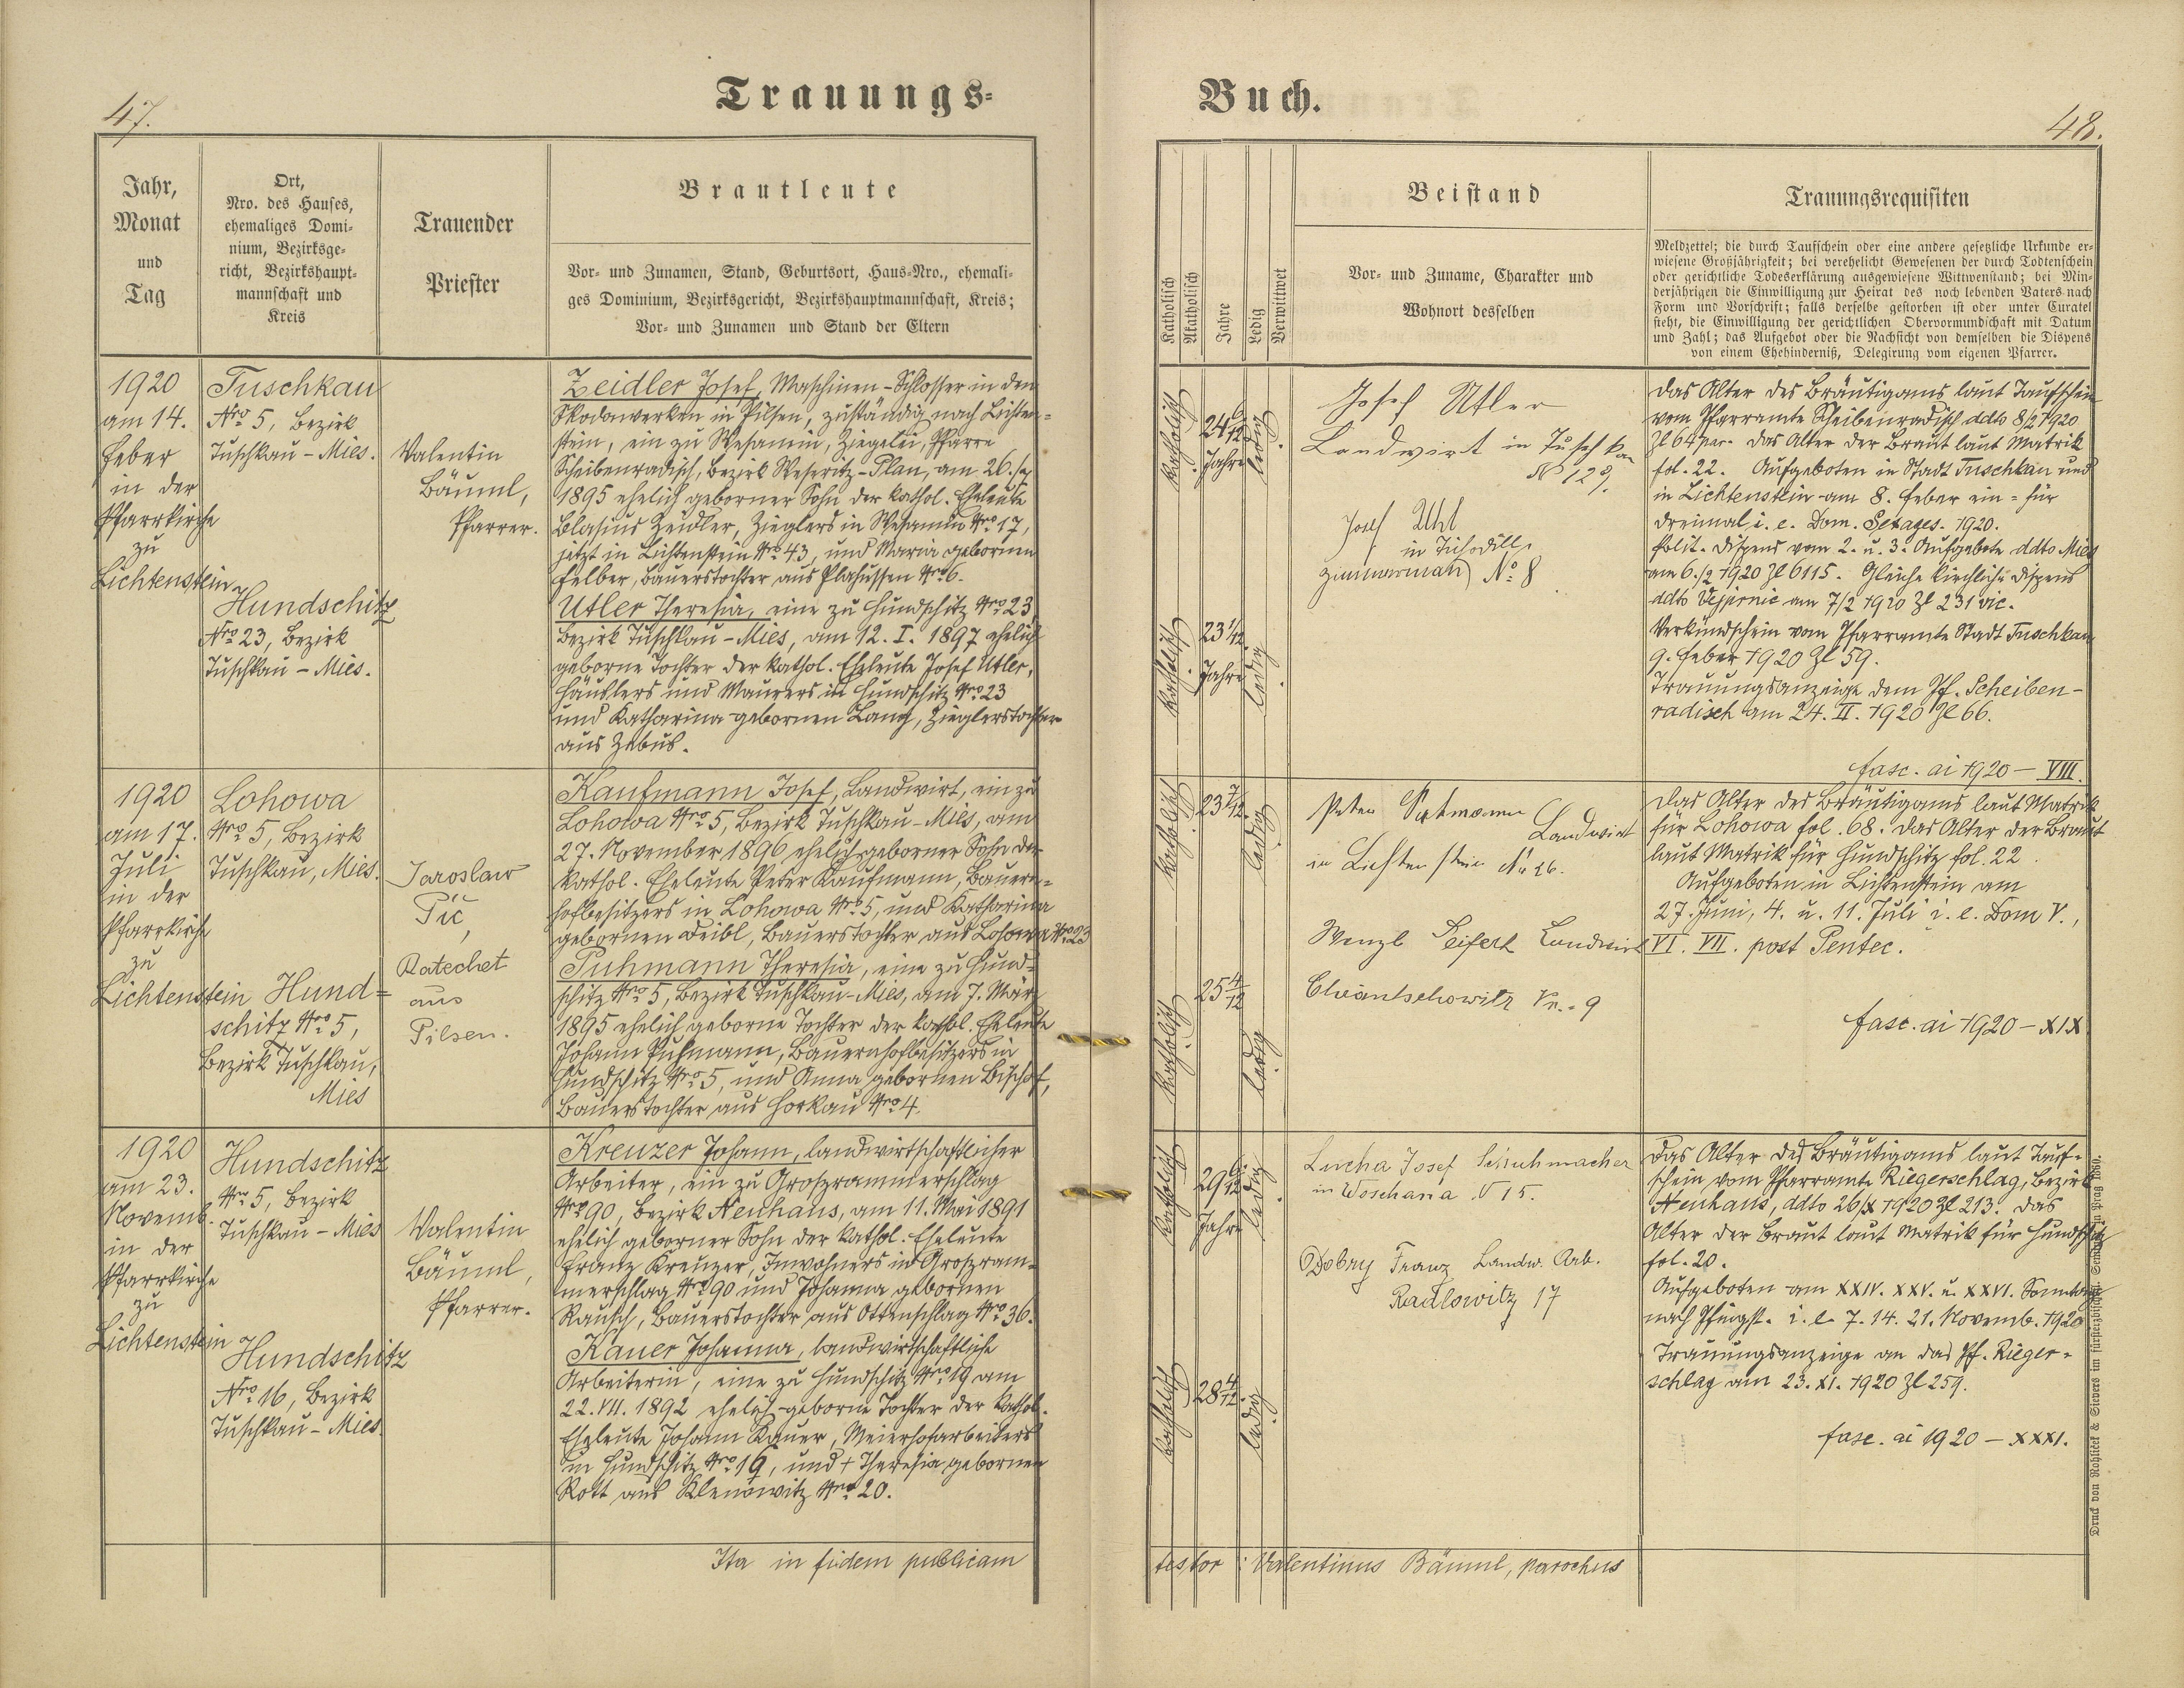 47.
Trauungs-
Jahr,
Monat
und
Tag
Ort,
Nro. des Hauses,
ehemaliges Domi-
nium, Bezirksge-
richt, Bezirkshaupt-
mannschaft und
Kreis
Trauender
Priester
Brautleute
Vor- und Zunamen, Stand, Geburtsort, Haus-Nro., ehemali-
ges Dominium, Bezirksgericht, Bezirkshauptmannschaft, Kreis;
Vor- und Zunamen und Stand der Eltern
1920
am 14.
Feber
in der
Pfarrkirche
zu
Lichtenstein
Tuschkau
Nro 5, Bezirk
Tuschkau - Mies.
Hundschitz
Nro 23, Bezirk
Tuschkau - Mies.
Valentin
Bäuml,
Pfarrer.
Zeidler Josef, Maschinen-Schlosser in den
Skodawerken in Pilsen, zuständig nach Lichten-
stein, ein zu Wesamin, Ziegelei, Pfarre
Scheibenradisch, Bezirk Weseritz-Plan, am 26./
1895 ehelich geborner Sohn der kathol. Eheleute
Blasius Zeidler, Zieglers in Wesamin Nro 17,
jetzt in Lichtenstein Nro 43, und Maria gebornen
Felber, Bauerstochter aus Plahussen Nro 6.
Utler Theresia, eine zu Hundschitz Nro 23,
Bezirk Tuschkau-Mies, am 12. I. 1897 ehelich
geborne Tochter der kathol. Eheleute Josef Utler,
Häuslers und Maurers in Hundschitz Nro 23
und Katharina gebornen Lang, Zieglerstochter
aus Zebus.
1920
am 17.
Juli
in der
Pfarrkirche
zu
Lichtenstein
Lohowa
Nro 5, Bezirk
Tuschkau, Mies.
Hund-
schitz Nro 5,
Bezirk Tuschkau,
Mies
Jaroslaw
Pič,
Katechet
aus
Pilsen.
Kaufmann Josef, Landwirt, ein zu
Lohowa Nro 5, Bezirk Tuschkau-Mies, am
27. November 1896 ehelich geborner Sohn der
kathol. Eheleute Peter Kaufmann, Bauern-
hofbesitzers in Lohowa Nro 5, und Katharina
gebornen Deibl, Bauerstochter aus Lohowa Nro 23
Puhmann Theresia, eine zu Hund-
schitz Nro 5, Bezirk Tuschkau-Mies, am 7. März
1895 ehelich geborne Tochter der kathol. Eheleute
Johann Puhmann, Bauernhofbesitzers in
Hundschitz Nro 5, und Anna gebornen Bischof,
Bauerstochter aus Horkau Nro 4.
1920
am 23.
Novemb.
in der
Pfarrkirche
zu
Lichtenstein
Hundschitz
Nro 5, Bezirk
Tuschkau - Mies
Hundschitz
Nro 16, Bezirk
Tuschkau - Mies.
Valentin
Bäuml,
Pfarrer.
Kreuzer Johann, landwirtschaftlicher
Arbeiter, ein zu Groszrammerschlag
Nro 90, Bezirk Neuhaus, am 11. Mai 1891
ehelich geborner Sohn der kathol. Eheleute
Franz Kreuzer, Inwohners in Groszram-
merschlag Nro 90 und Johanna gebornen
Rausch, Bauerstochter aus Ottenschlag Nro 36.
Kauer Johanna, landwirtschaftliche
Arbeiterin, eine zu Hundschitz Nro 19 am
22. VII. 1892 ehelich geborne Tochter der kathol.
Eheleute Johann Kauer, Meierhofarbeiters
in Hundschitz Nro 16, und + Theresia gebornen
Rott aus Klenowitz Nro 20.
Ita in fidem publicam
48.
Buch.
Katholisch
Akatholisch
Jahre
Ledig
Verwittwet
Beistand
Vor- und Zuname, Charakter und
Wohnort desselben
Trauungsrequisiten
Meldzettel; die durch Taufschein oder eine andere gesetzliche Urkunde er-
wiesene Großjährigkeit; bei verehelicht Gewesenen der durch Todtenschein
oder gerichtliche Todeserklärung ausgewiesene Wittwenstand; bei Min-
derjährigen die Einwilligung zur Heirat des noch lebenden Vaters nach
Form und Vorschrift; falls derselbe gestorben ist oder unter Curatel
steht, die Einwilligung der gerichtlichen Obervormundschaft mit Datum
und Zahl; das Aufgebot oder die Nachsicht von demselben die Dispens
von einem Ehehinderniß, Delegirung vom eigenen Pfarrer.
katholisch
24 6/12
Jahre
ledig
katholisch
23 1/12
Jahre
ledig
Josef Utler
Landwirt in Tuschkau
No 129.
Josef Uhl
in Tschodill
Zimmermann No 8
Das Alter des Bräutigams laut Taufschein
vom Pfarramte Scheibenradisch ddto 8/2 1920
Zl 64 par. Das Alter der Braut laut Matrik
fol. 22. Aufgeboten in Stadt Tuschkau und
in Lichtenstein am 8. Feber ein- für
dreimal i. e. Dom. Sexages. 1920.
Polit. Dispens vom 2. u. 3. Aufgebote ddto Mies
am 6./2 1920 Zl 6115. Gleiche kirchliche Dispens
ddto Vejprnic am 7/2 1920 Zl 231 vic.
Verkündschein vom Pfarramte Stadt Tuschkau
9. Feber 1920 Zl 59.
Trauungsanzeige dem Pf. Scheiben-
radisch am 24. II. 1920 Zl 66.
fasc. ai 1920 - VIII.
katholisch
23 7/12
ledig
katholisch
25 4/12
ledig
Peter Puhmann
Landwirt
in Lichtenstein Nr 26.
Wenzl Seifert Landwirt
Chrántschowitz Nr. 9
Das Alter des Bräutigams laut Matrik
für Lohowa fol. 68. Das Alter der Braut
laut Matrik für Hundschitz fol. 22.
Aufgeboten in Lichtenstein am
27. Juni, 4. u. 11. Juli i. e. Dom V.,
VI. VII. post Pentec.
fasc. ai 1920 - XIX
katholisch
29 6/12
Jahre
ledig
katholisch
28 4/12
ledig
Lucha Josef Schuhmacher
in Woschana N 15.
Dobry Franz Landw. Arb.
Radlowitz 17
Das Alter des Bräutigams laut Tauf-
schein vom Pfarramte Riegerschlag, Bezirk
Neuhaus, ddto 26/X 1920 Zl 213. Das
Alter der Braut laut Matrik für Hundschitz
fol. 20.
Aufgeboten am XXIV. XXV. u. XXVI. Sonntag
nach Pfingst. i. e. 7. 14. 21. Novemb. 1920
Trauungsanzeige an das Pf. Rieger-
schlag am 23. XI. 1920 Zl 259.
fasc. ai 1920 - XXXI.
testor : Valentinus Bäuml, parochus